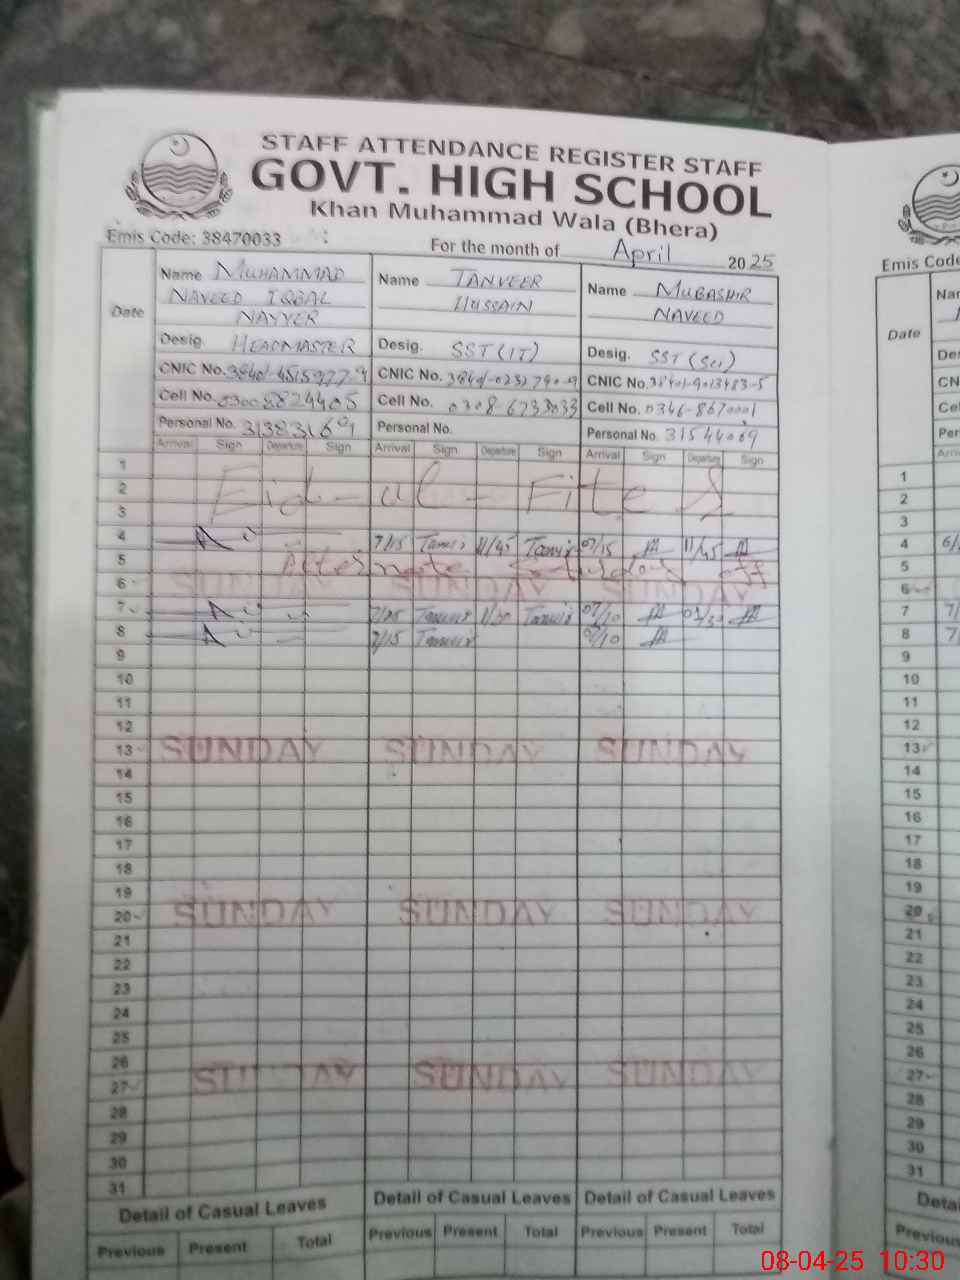 STAFF ATTENDANCE REGISTER STAFF
GOVT. HIGH SCHOOL
Khan Muhammad Wala (Bhera)
Emis Code: 38470033
For the month of April 2025
Date
Name MUHAMMAD
NAVEED IQBAL
NAYYER
Desig. HEADMASTER
CNIC No.
Cell No. 0300 8824405
Personal No. 31383169
Name TANVEER
HUSSAIN
Desig. SST (IT)
CNIC No.
Cell No. 0308-6733033
Personal No.
Name MUBASHIR
NAVEED
Desig. SST (Sci)
CNIC No. 38401-9013483-5
Cell No. 0346-8670001
Personal No. 31544069
Arrival Sign Departure Sign Arrival Sign Departure Sign Arrival Sign Departure Sign
1
2 Eid-ul-Fiter
3
4 7/15 Tanvir 11/45 Tanvir 07/15 11/45
5 Alternate Saturday off
6 SUNDAY SUNDAY SUNDAY
7 Tanvir Tanvir 07/10
8 7/15 Tanvir 07/10
9
10
11
12
13 SUNDAY SUNDAY SUNDAY
14
15
16
17
18
19
20 SUNDAY SUNDAY SUNDAY
21
22
23
24
25
26
27 SUNDAY SUNDAY SUNDAY
28
29
30
31
Detail of Casual Leaves Detail of Casual Leaves Detail of Casual Leaves
Previous Present Total Previous Present Total Previous Present Total
Emis Code
Date
1
2
3
4
5
6
7
8
9
10
11
12
13
14
15
16
17
18
19
20
21
22
23
24
25
26
27
28
29
30
31
Previous
08-04-25 10:30